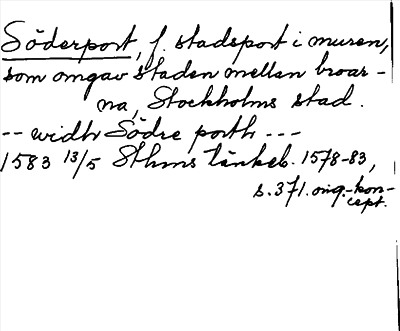 Söderport, f. stadsport i muren,
som omgav staden mellan broar-
na, Stockholms stad.
-- widh Södre porth ---
1583 13/5 Sthms tänkeb. 1578-83,
s. 371. orig.-kon-
cept.